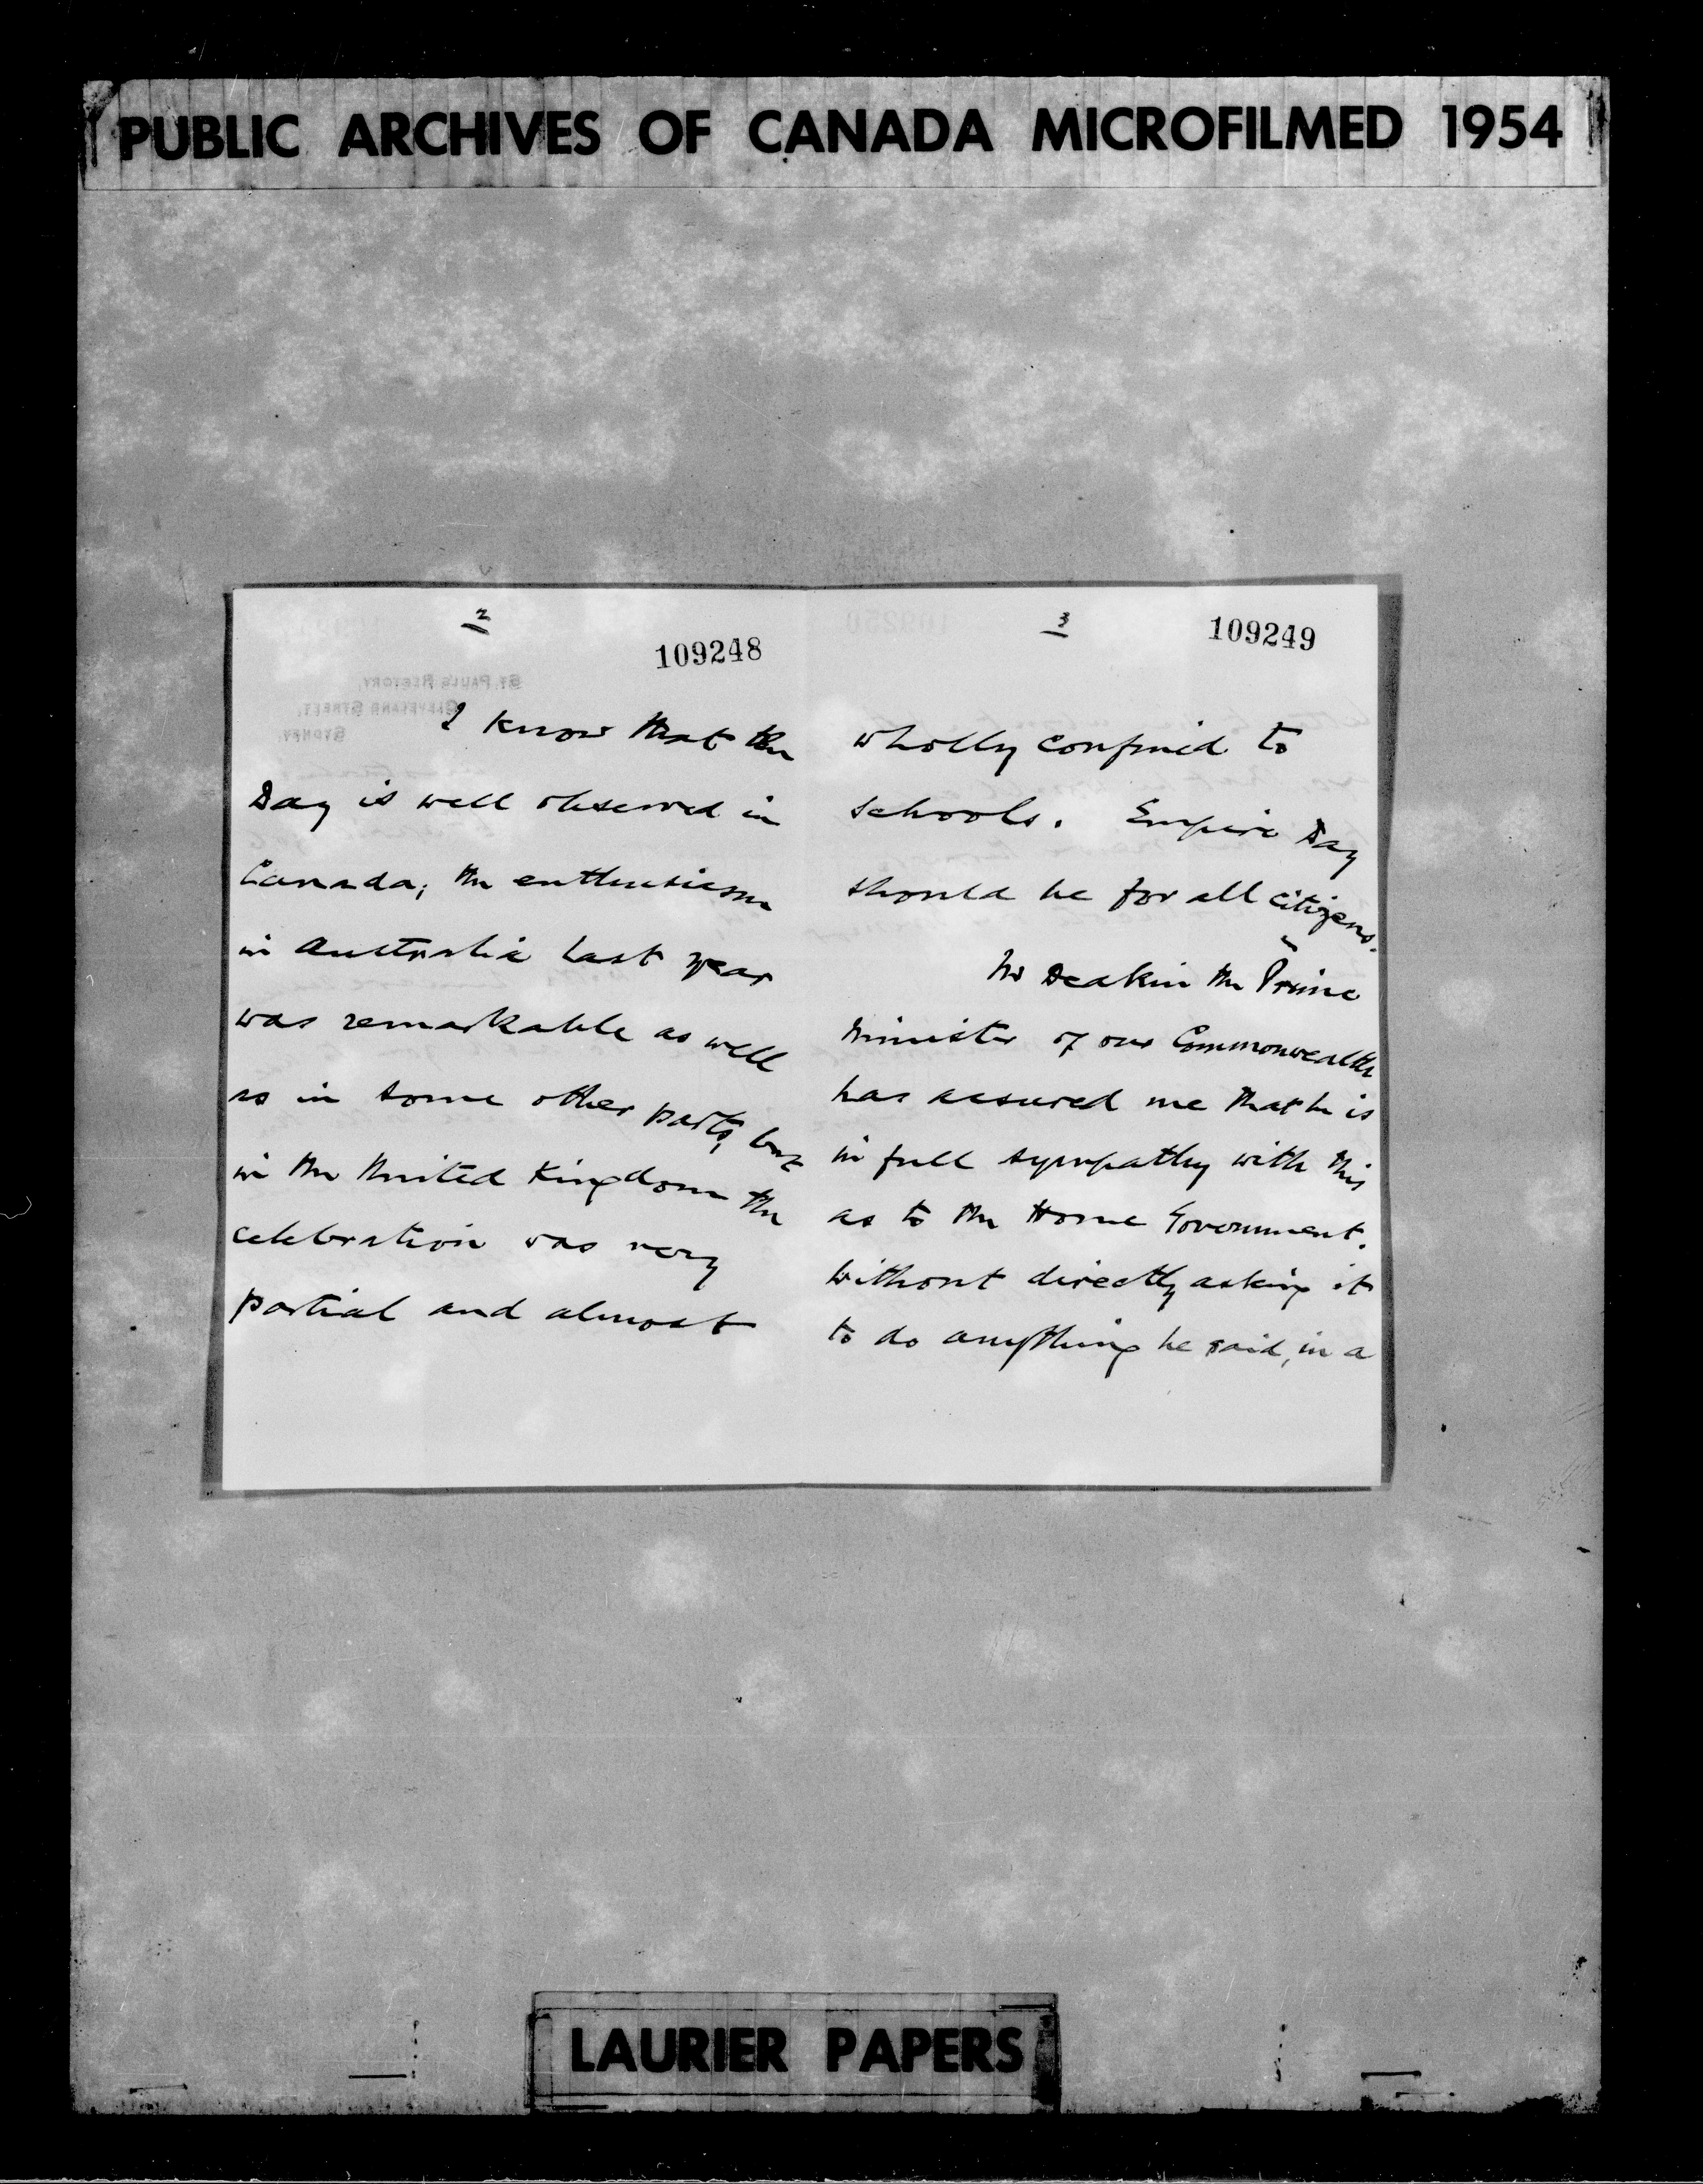 PUBLIC ARCHIVES OF CANADA MICROFILMED 1954
2
109248
ST PAUL'S RECTORY,
CLEVELAND STREET,
SYDNEY.
I know that the
Day is well observed in
Canada; the enthusiasm
in Australia last year
was remarkable as well
as in some other parts, but
in the United Kingdom the
celebration was very
partial and almost
3
109249
109250
wholly confined to
schools. Empire Day
should be for all citizens.
Mr Deakin the Prime
Minister of our Commonwealth
has assured me that he is
in full sympathy with this
as to the Home Government.
Without directly asking it
to do anything he said, in a
LAURIER PAPERS